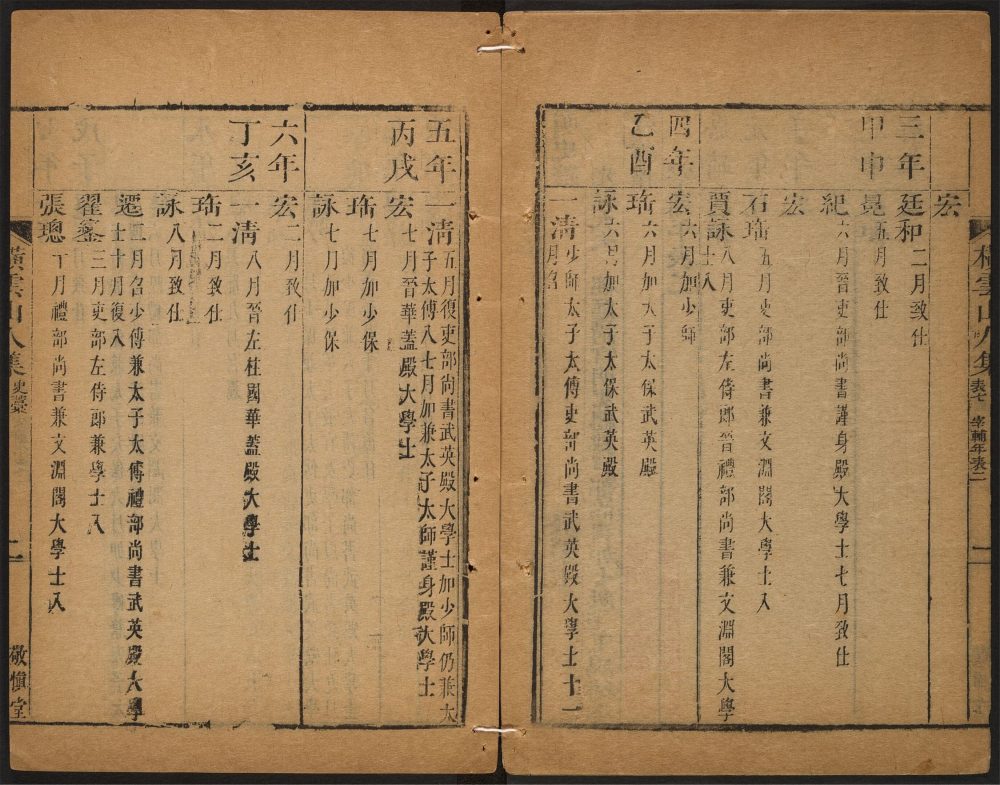 宏
三年
甲申
廷和 二月致仕
冕 五月致仕
紀 六月晉吏部尚書謹身殿大學士七月致仕
宏
石珤 五月吏部尚書兼文淵閣大學士入
賈詠 八月吏部左侍郎晉禮部尚書兼文淵閣大學
士入
四年
乙酉
宏 六月加少師
珤 六月加太子太保武英殿
詠 六月加太子太保武英殿
一清 少師太子太傅吏部尚書武英殿大學士十一
月召
五年
丙戌
一清 五月復吏部尚書武英殿大學士加少師仍兼太
子太傅入七月加兼太子太師謹身殿大學士
宏 七月晉華蓋殿大學士
珤 七月加少保
詠 七月加少保
六年
丁亥
宏 二月致仕
一清 八月晉左柱國華蓋殿大學士
珤 二月致仕
詠 八月致仕
遷 二月召少傅兼太子太傅禮部尚書武英殿大學
士十月復入
翟鑾 三月吏部左侍郎兼學士入
張璁 十月禮部尚書兼文淵閣大學士入
橫雲山人集 史稾
表七 宰輔年表二
一
橫雲山人集 史稾
二
敬愼堂